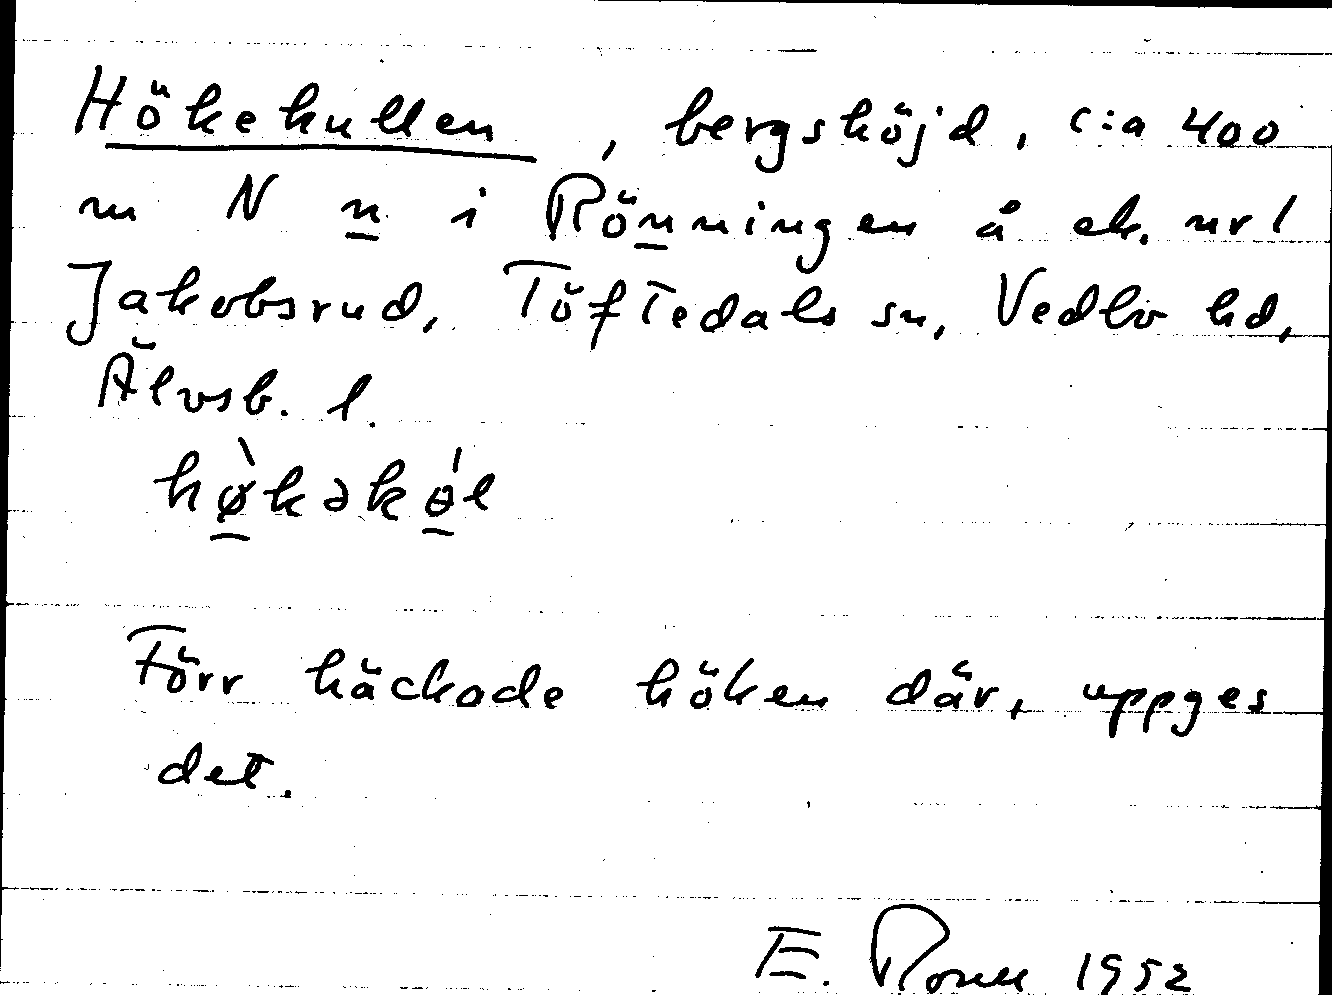 Hökekullen, bergshöjd, c:a 400
m N n i Rönningen å ek. nr 1
Jakobsrud, Töftedals sn, Vedbo hd,
Älvsb. l.
hø̀kəkɵ́l
Förr häckade höken där, uppges
det.
E. 1952